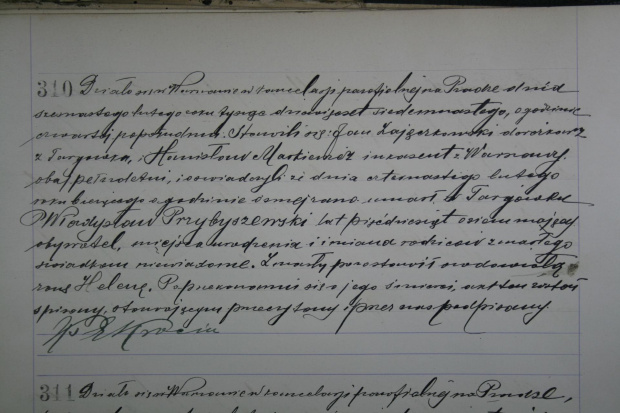 310 Działo się w Warszawie w kancelarji parafialnej na Pradze dnia
szesnastego lutego roku tysiąc dziewięćset siedemnastego, o godzinie
czwartej popołudniu. Stawili się: Jan Zajączkowski dorożkarz
z Targówka, i Stanisław Markiewicz inkasent z Warszawy
obaj pełnoletni, i oświadczyli że dnia czternastego lutego
roku bieżącego o godzinie ósmej rano umarł w Targówku
Władysław Przybyszewski lat pięćdziesiąt osiem mający
obywatel, miejsca urodzenia i imiona rodziców zmarłego
świadkom niewiadome. Zmarły pozostawił owdowiałą
żonę Helenę. Po przekonaniu się o jego śmierci, akt ten został
spisany, stawającym przeczytany i przez nas podpisany.
311 Działo się w Warszawie w kancelarji parafialnej na Pradze,